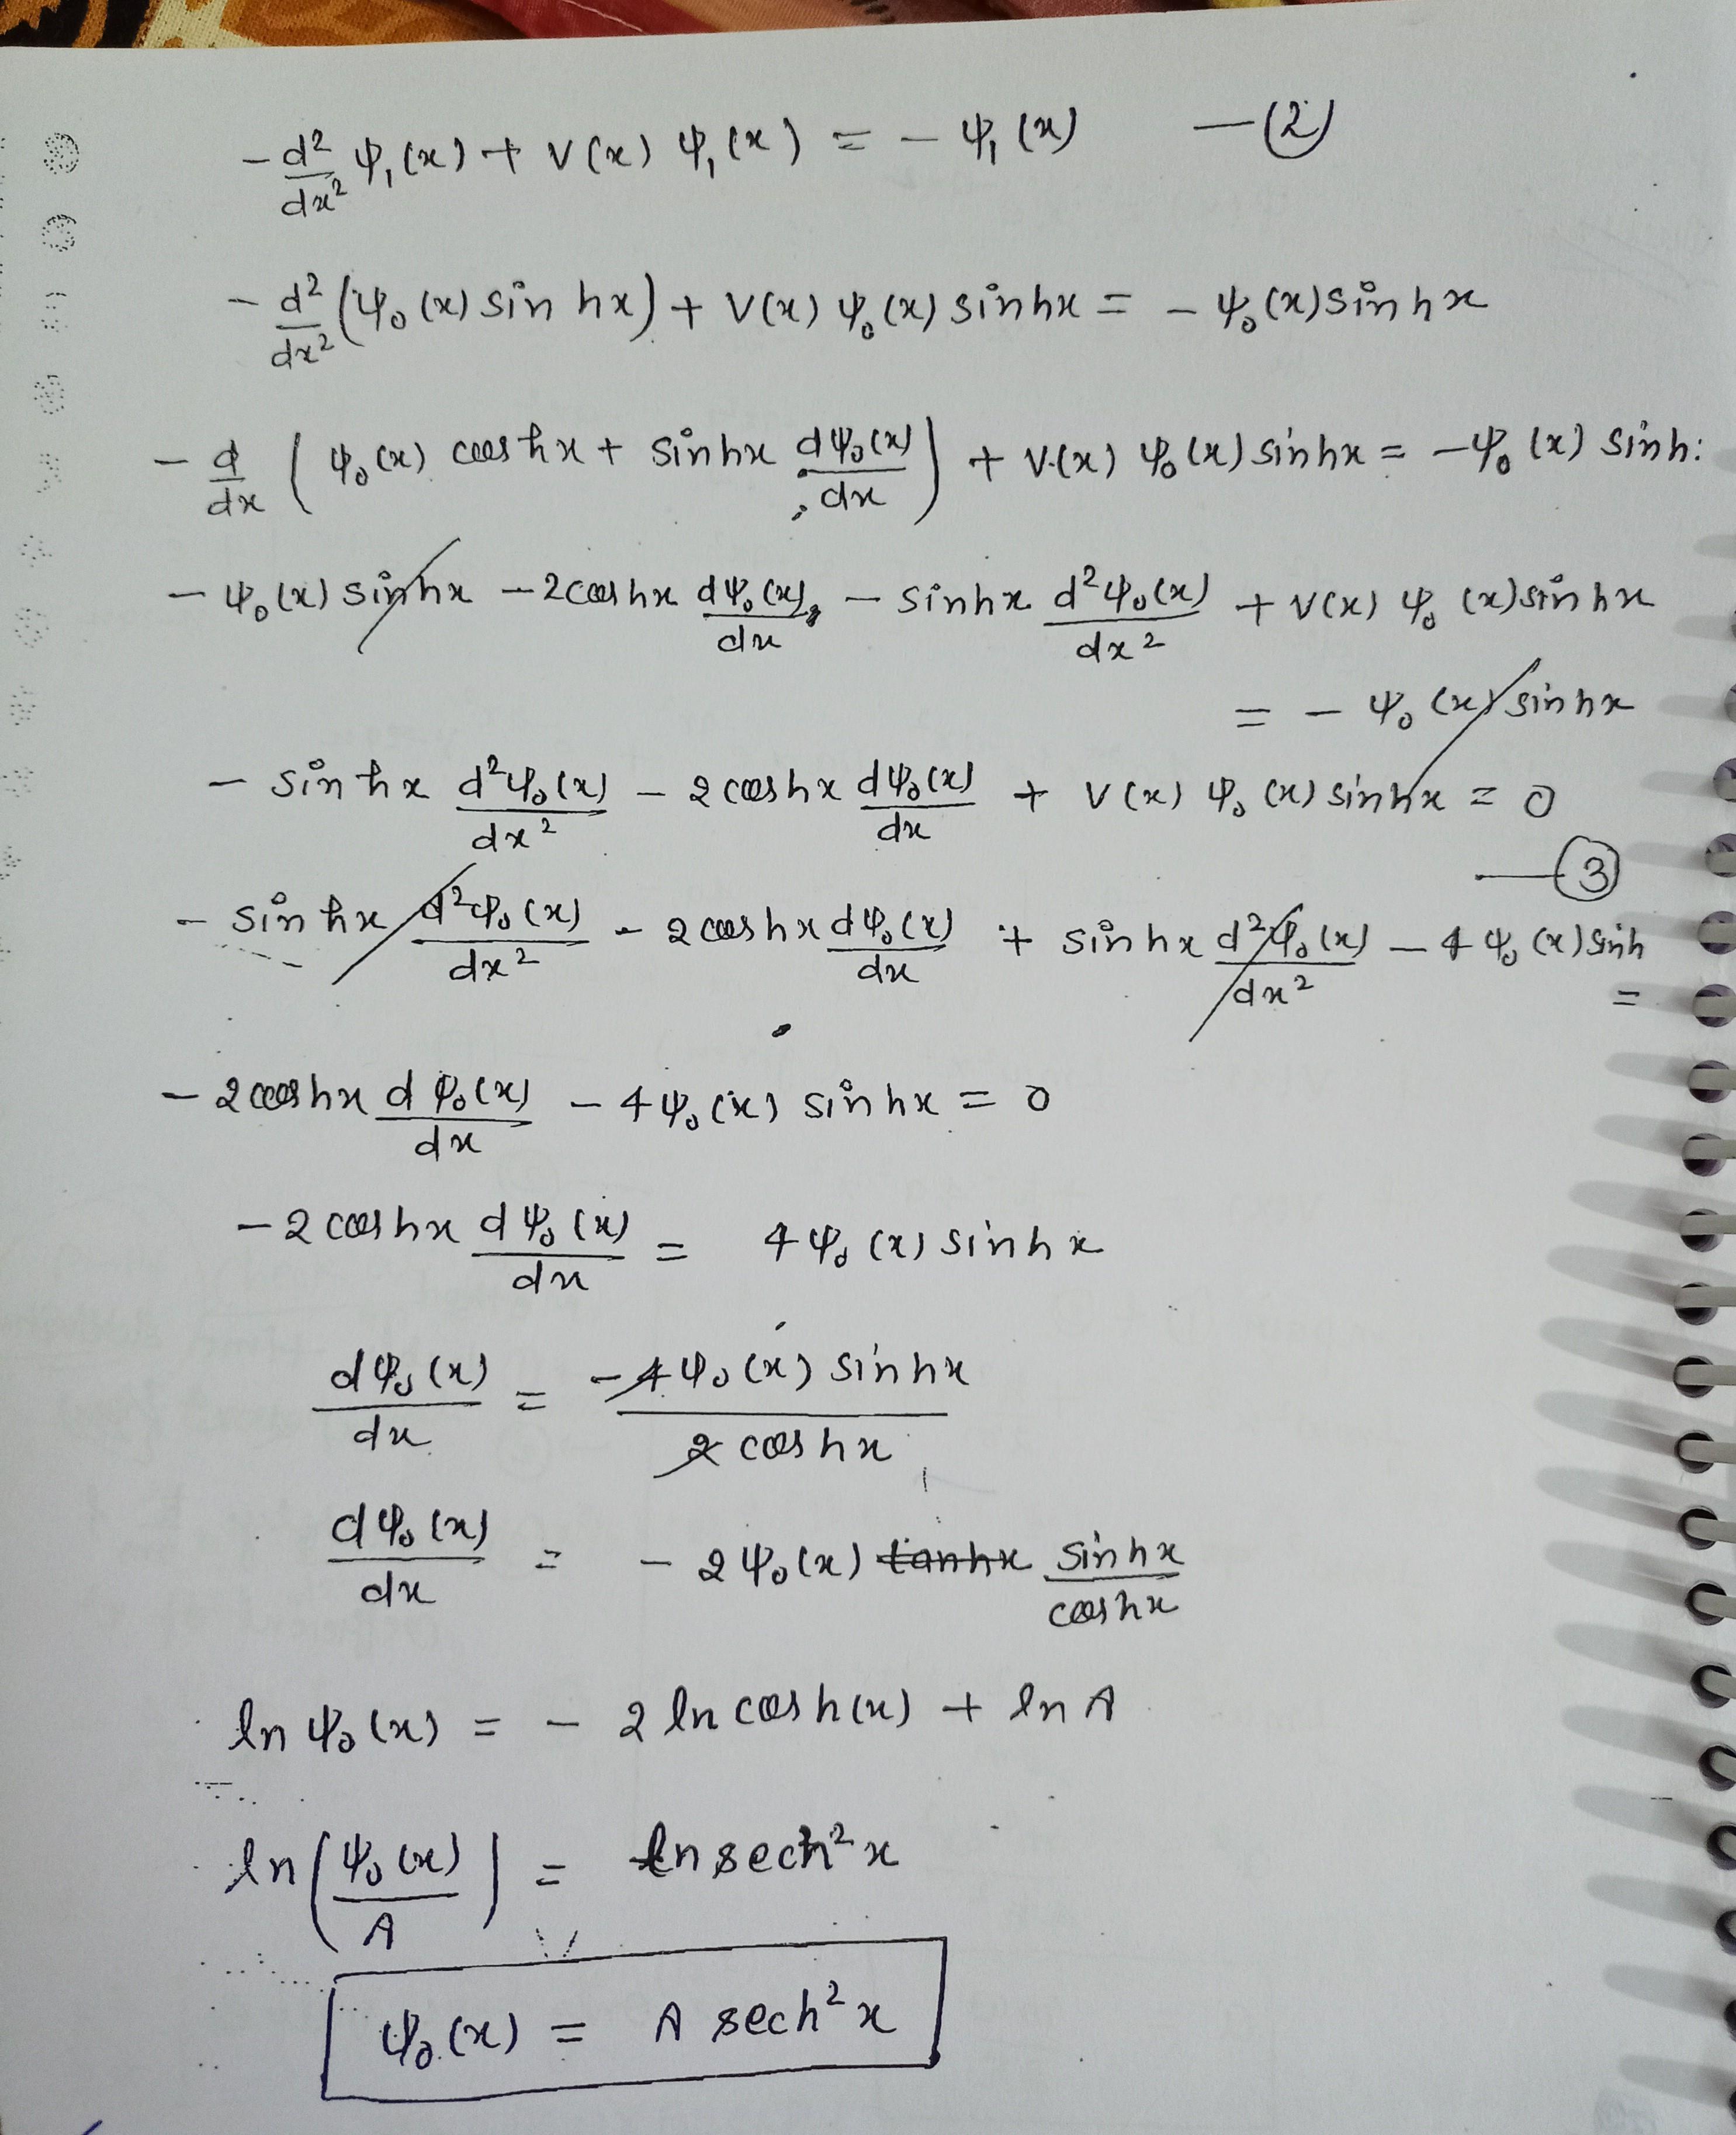 -d²/dx² ψ₁(x) + V(x) ψ₁(x) = - ψ₁(x) —(2)
-d²/dx² (ψ₀(x) sin hx) + V(x) ψ₀(x) sinhx = - ψ₀(x) sin hx
-d/dx (ψ₀(x) cos hx + sinhx dψ₀(x)/dx) + V(x) ψ₀(x) sinhx = -ψ₀(x) sinh
- ψ₀(x) sinhx - 2coshx dψ₀(x)/dx - sinhx d²ψ₀(x)/dx² + V(x) ψ₀(x) sinhx
= - ψ₀(x) sinhx
- sinhx d²ψ₀(x)/dx² - 2coshx dψ₀(x)/dx + V(x) ψ₀(x) sinhx = 0
—(3)
- sinhx d²ψ₀(x)/dx² - 2coshx dψ₀(x)/dx + sinhx d²ψ₀(x)/dx² - 4ψ₀(x) sinh
=
- 2coshx dψ₀(x)/dx - 4ψ₀(x) sinhx = 0
- 2coshx dψ₀(x)/dx = 4ψ₀(x) sinhx
dψ₀(x)/dx = -4ψ₀(x) sinhx / 2coshx
dψ₀(x)/dx = - 2ψ₀(x) tanhx sinhx/coshx
ln ψ₀(x) = - 2 ln cosh(x) + ln A
ln(ψ₀(x)/A) = ln sech²x
ψ₀(x) = A sech²x